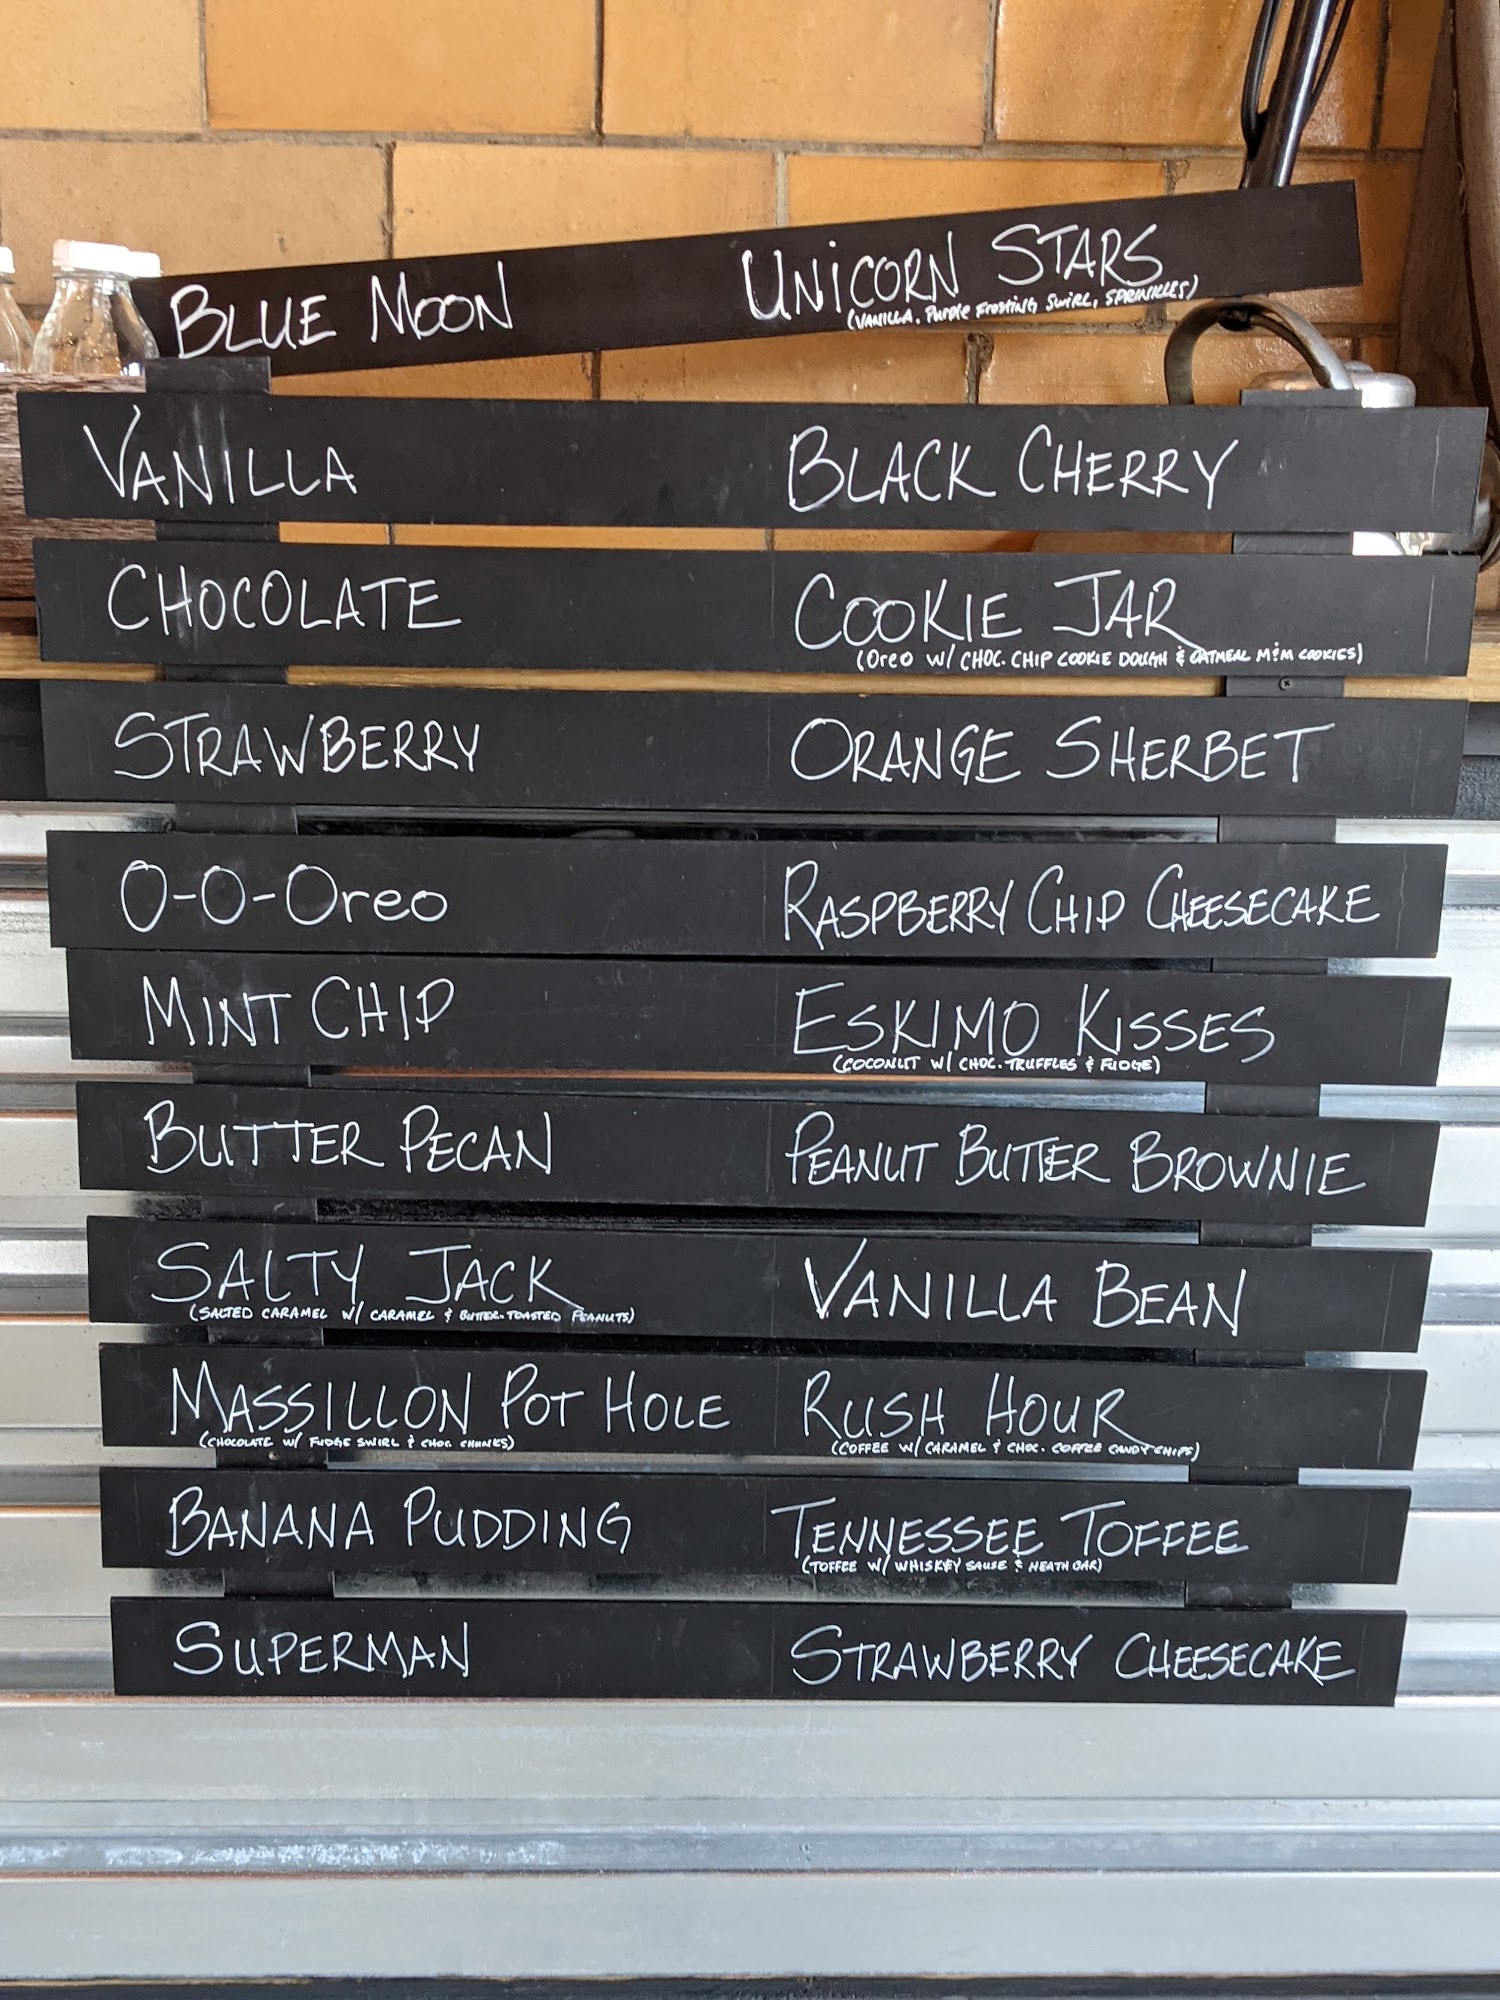 BLUE MOON
UNICORN STARS
(VANILLA, Purple Frosting Swirl, SPRINKLES)
VANILLA
BLACK CHERRY
CHOCOLATE
COOKIE JAR
(Oreo W/ CHOC. CHIP COOKIE DOUGH & OATMEAL M&M COOKIES)
STRAWBERRY
ORANGE SHERBET
O-O-Oreo
RASPBERRY CHIP CHEESECAKE
MINT CHIP
ESKIMO KISSES
(COCONUT W/ CHOC. TRUFFLES & FUDGE)
BUTTER PECAN
PEANUT BUTTER BROWNIE
SALTY JACK
(SALTED CARAMEL W/ CARAMEL & BUTTER-TOASTED PEANUTS)
VANILLA BEAN
MASSILLON POT HOLE
(CHOCOLATE W/ FUDGE SWIRL & CHOC. CHUNKS)
RUSH HOUR
(COFFEE W/ CARAMEL & CHOC. COFFEE CANDY CHIPS)
BANANA PUDDING
TENNESSEE TOFFEE
(TOFFEE W/ WHISKEY SAUSE & HEATH BAR)
SUPERMAN
STRAWBERRY CHEESECAKE